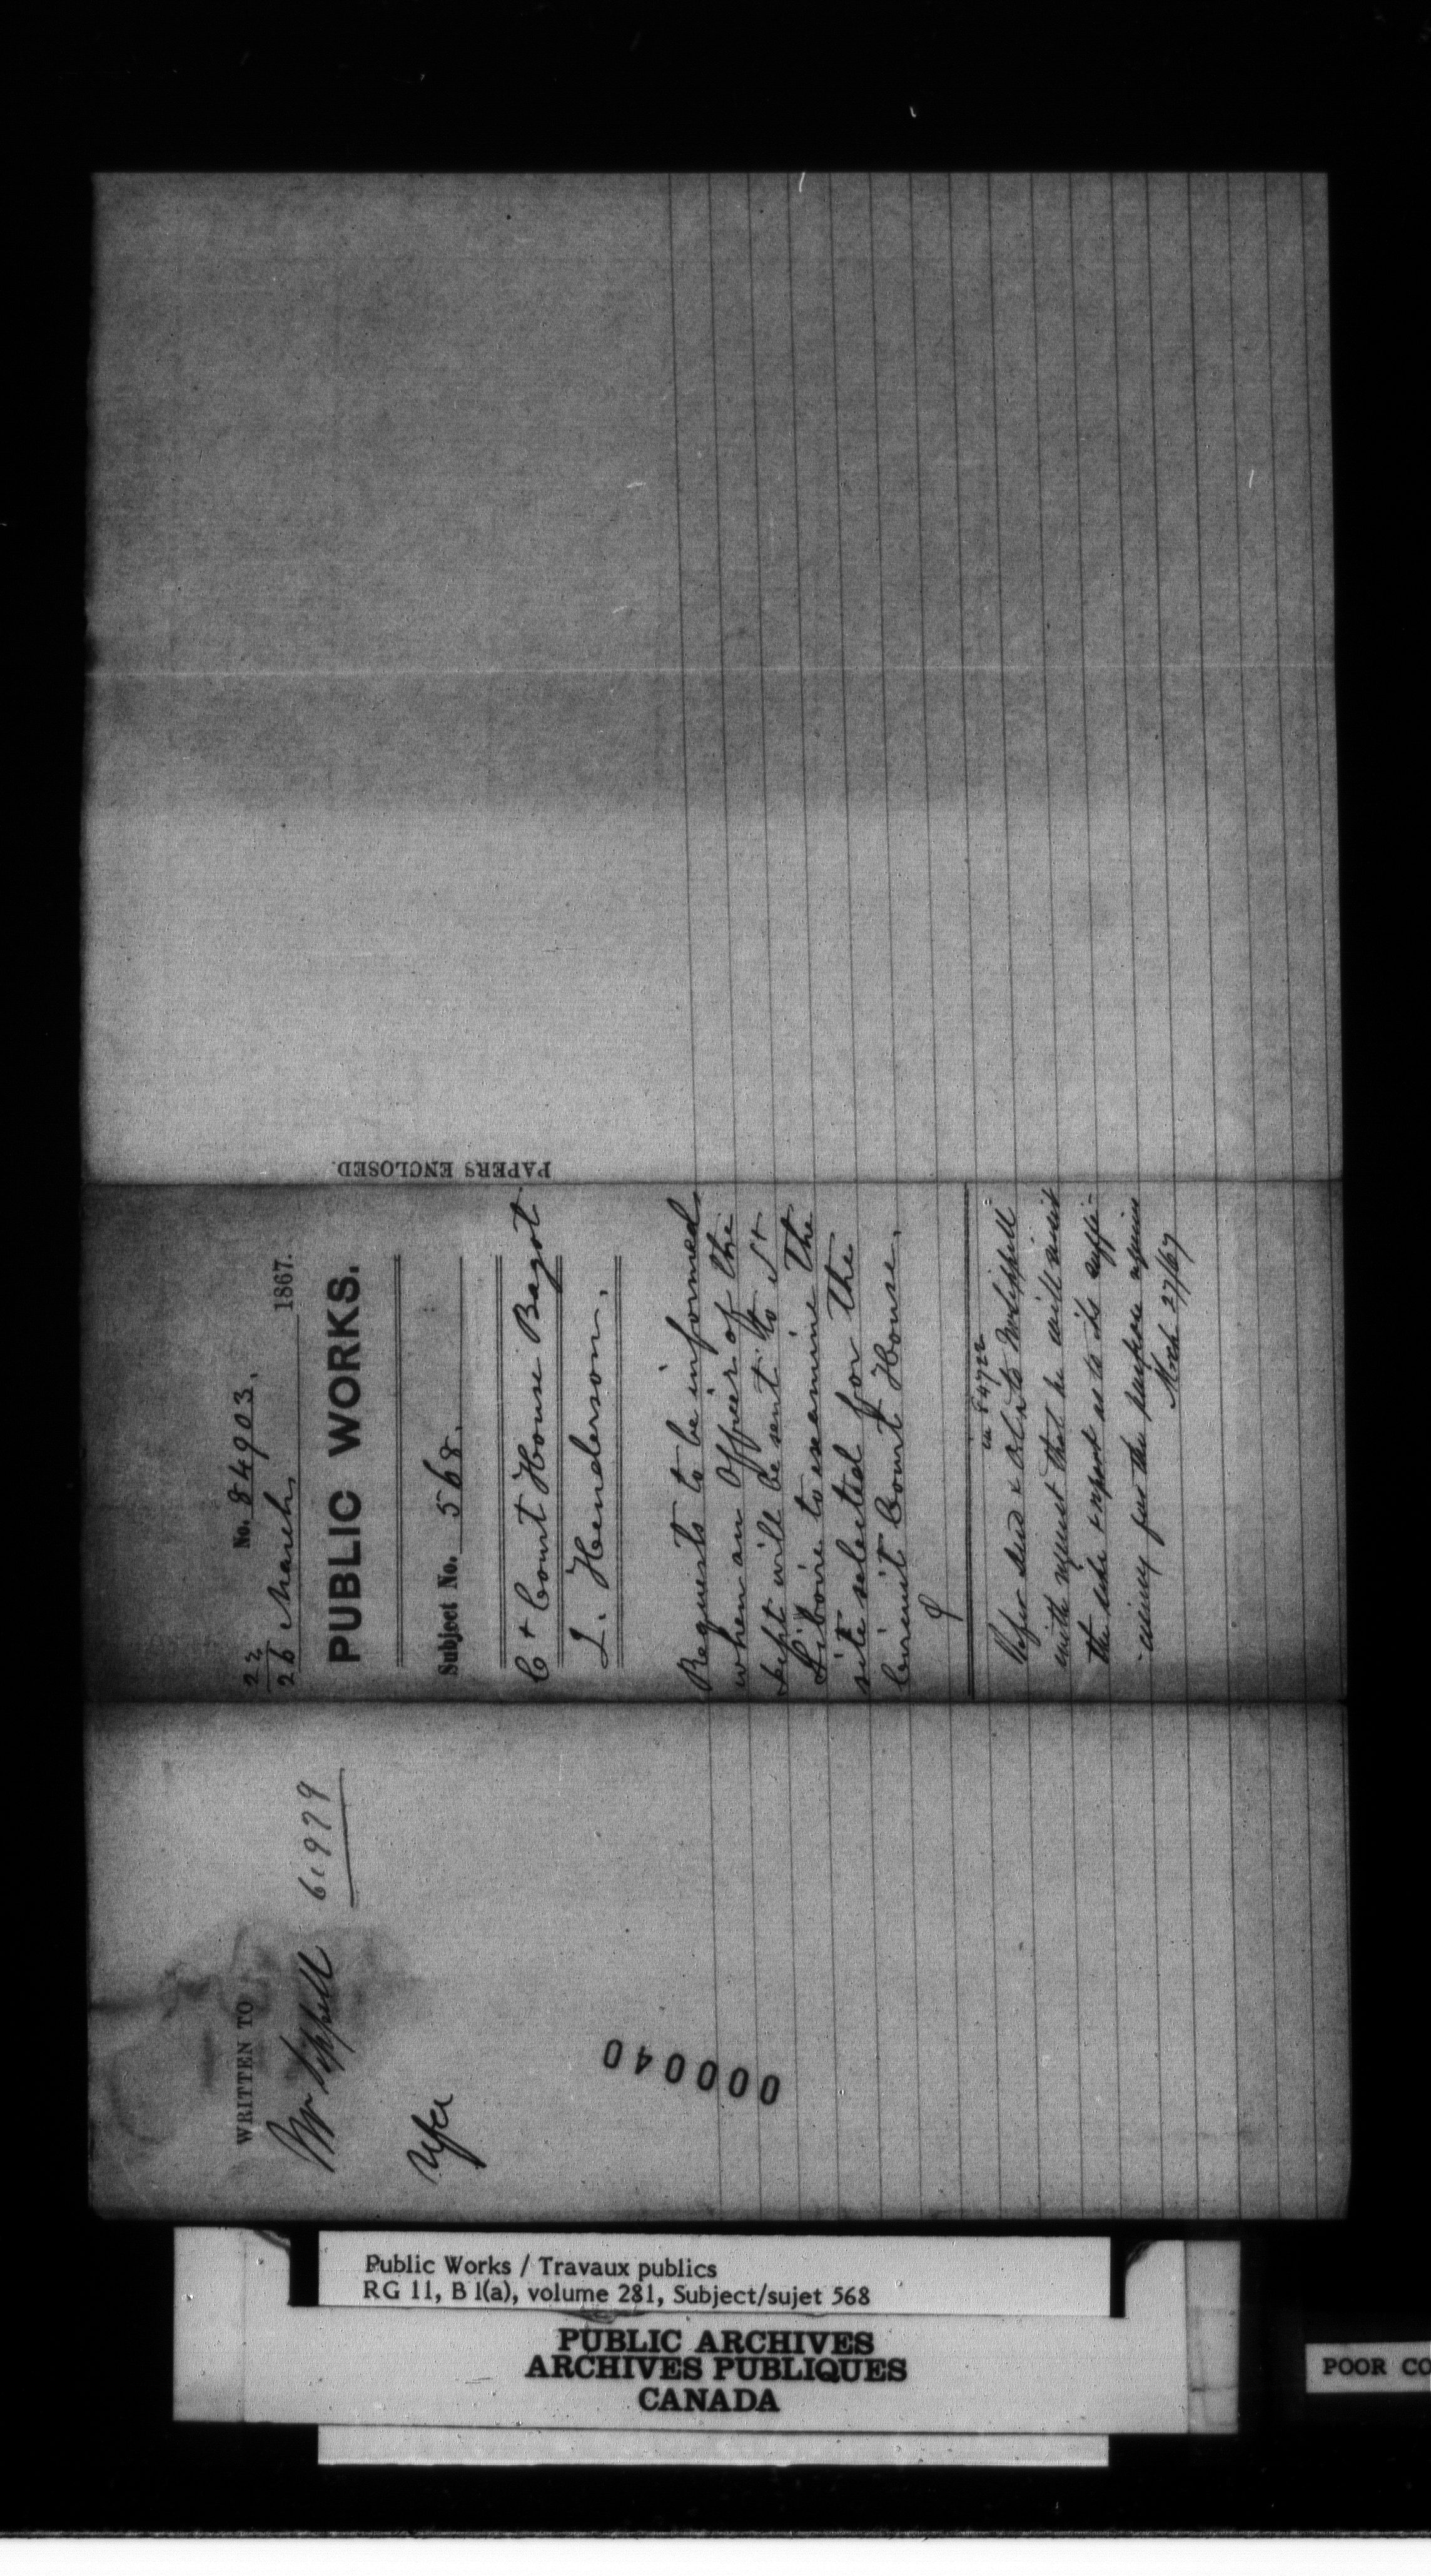 No. 84903.
22
26 March 1867.
PUBLIC WORKS.
Subject No. 568.
C + Court House Bagot
L. Henderson.
Requests to be informed
when an Officer of the
Dept will be sent to St
Liboire to examine the
site selected for the
Circuit Court House.
in 84722
Refer Deed & to Mr Sippell
with request that he will visit
the site & report as to its suffi-
-ciency for the purpose
March 27/67
PAPERS ENCLOSED.
WRITTEN TO
Mr Sippell 61979
000040
Public Works / Travaux publics
RG 11, B 1(a), volume 281, Subject/sujet 568
PUBLIC ARCHIVES
ARCHIVES PUBLIQUES
CANADA
POOR CO